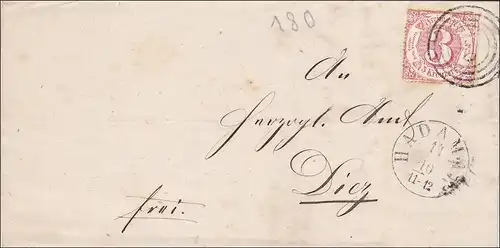 180
3
An
Herzogl. Amt
HADAMAR
11
10
11-12
Diez
frei.